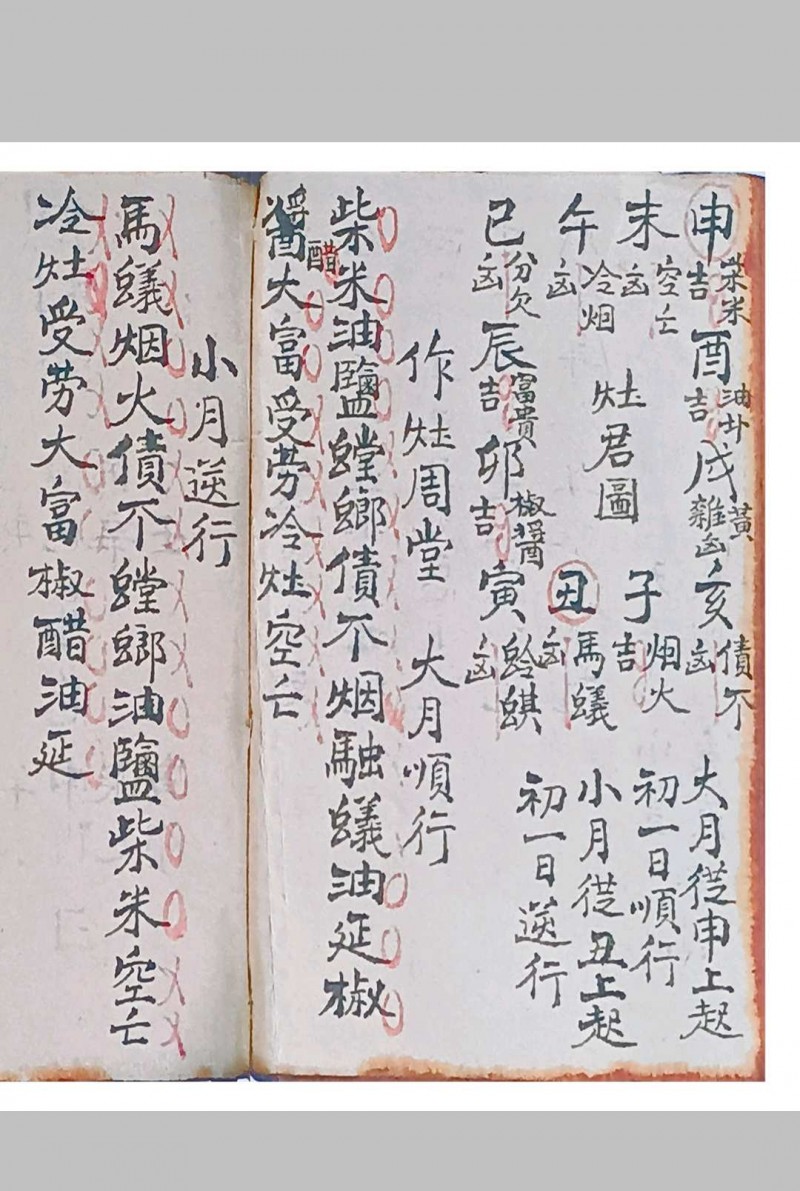 申 吉 柴米 酉 吉 油卦 戌 黃雜凶 亥 凶 債不
大月從申上起
未 凶 空亡
子 吉 烟火
初一日順行
灶君圖
午 凶 冷烟
丑 凶 馬蟻
小月從丑上起
巳 凶 分欠 辰 吉 富貴 卯 吉 椒醬 寅 凶
初一日逆行
作灶周堂 大月順行
柴米油鹽螳螂債不烟融蟻油延椒
醬醋大富受劳冷灶空亡
小月逆行
馬蟻烟火債不螳螂油鹽柴米空亡
冷灶受劳大富椒醋油延